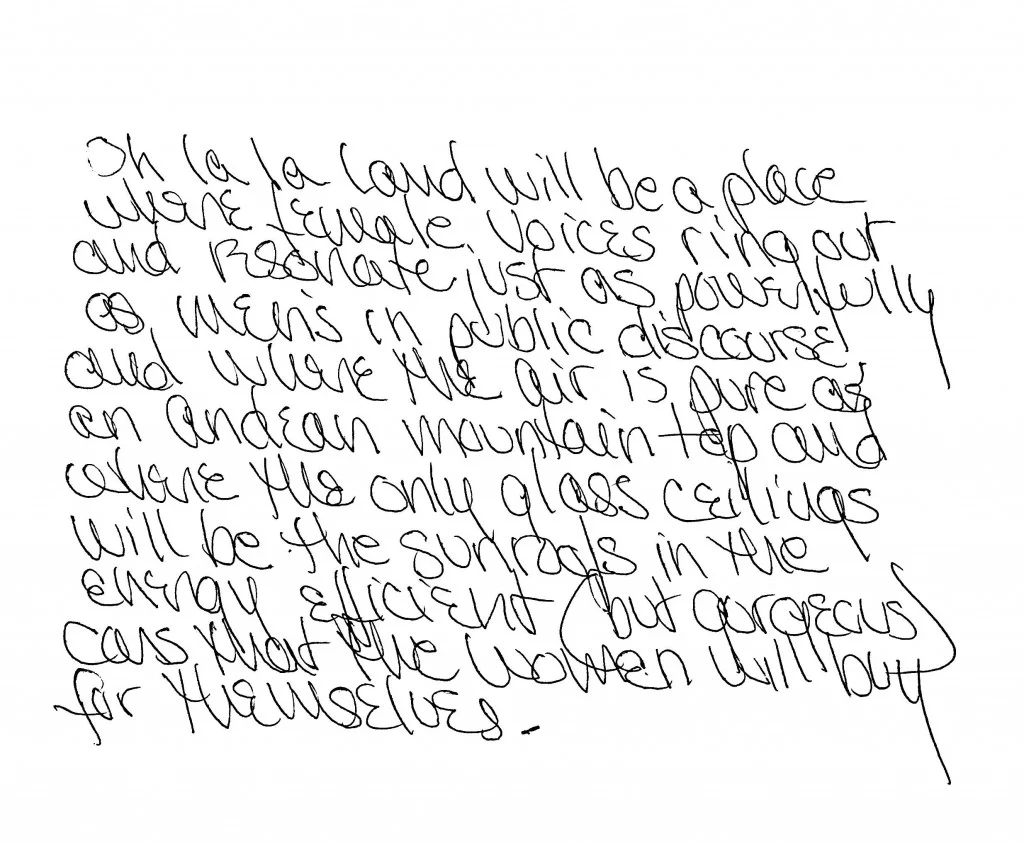 Oh la la land will be a place
where female voices ring out
and resonate just as powerfully
as men's in public discourse
and where the air is pure as
an andean mountain top and
where the only glass ceilings
will be the sunroofs in the
energy efficient (but gorgeous)
cars that the women will buy
for themselves.